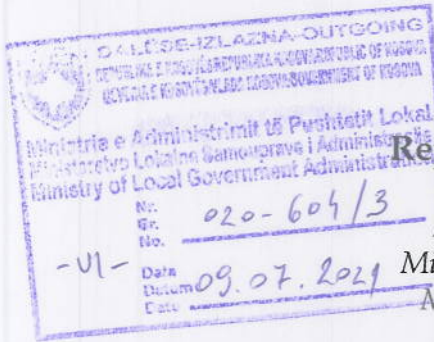 DALËSE-IZLAZNA-OUTGOING
REPUBLIKA E KOSOVËS/REPUBLIKA KOSOVA/REPUBLIC OF KOSOVA
QEVERIA E KOSOVËS/VLADA KOSOVA/GOVERNMENT OF KOSOVA
Ministria e Administrimit të Pushtetit Lokal
Ministarstvo Lokalne Samouprave i Administracije
Ministry of Local Government Administration
Re
Nr.
Br.
No.
020-604/3
-VI-
Data
Datum
Date
09.07.2021
M